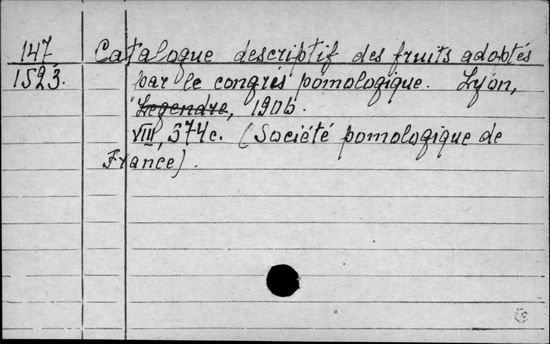 147 Catalogue descriptif des fruits adoptés
1523. par le congres pomologique. Lyon,
Legendre, 1906.
VIII, 374c. (Société pomologique de
France).